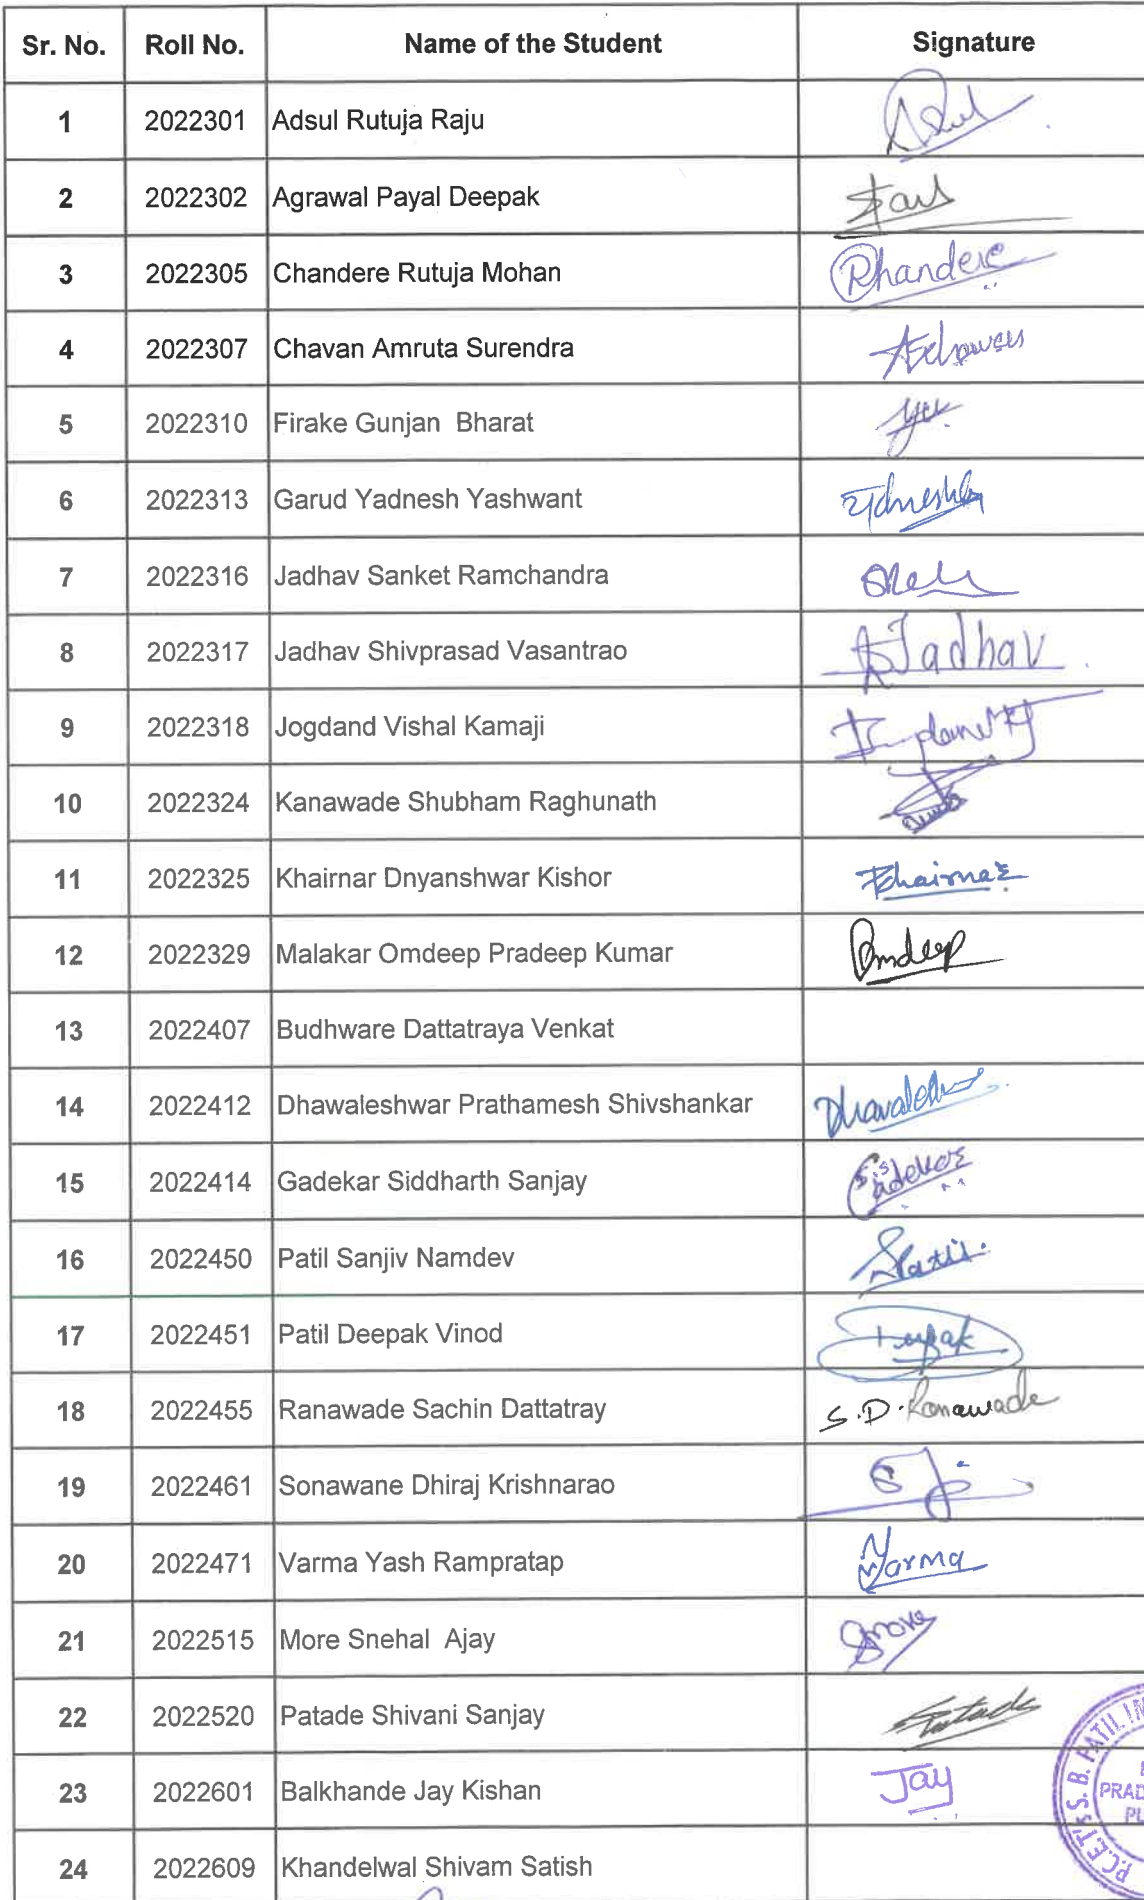 Sr. No. Roll No. Name of the Student Signature
1 2022301 Adsul Rutuja Raju
2 2022302 Agrawal Payal Deepak
3 2022305 Chandere Rutuja Mohan Rhandere
4 2022307 Chavan Amruta Surendra
5 2022310 Firake Gunjan Bharat
6 2022313 Garud Yadnesh Yashwant
7 2022316 Jadhav Sanket Ramchandra
8 2022317 Jadhav Shivprasad Vasantrao Jadhav
9 2022318 Jogdand Vishal Kamaji
10 2022324 Kanawade Shubham Raghunath
11 2022325 Khairnar Dnyanshwar Kishor
12 2022329 Malakar Omdeep Pradeep Kumar Omdeep
13 2022407 Budhware Dattatraya Venkat
14 2022412 Dhawaleshwar Prathamesh Shivshankar
15 2022414 Gadekar Siddharth Sanjay
16 2022450 Patil Sanjiv Namdev
17 2022451 Patil Deepak Vinod Deepak
18 2022455 Ranawade Sachin Dattatray S.D. Ranawade
19 2022461 Sonawane Dhiraj Krishnarao
20 2022471 Varma Yash Rampratap Varma
21 2022515 More Snehal Ajay Smore
22 2022520 Patade Shivani Sanjay
23 2022601 Balkhande Jay Kishan Jay
P.C.E.T's S. B. PATIL IN
PRAD
PU
24 2022609 Khandelwal Shivam Satish